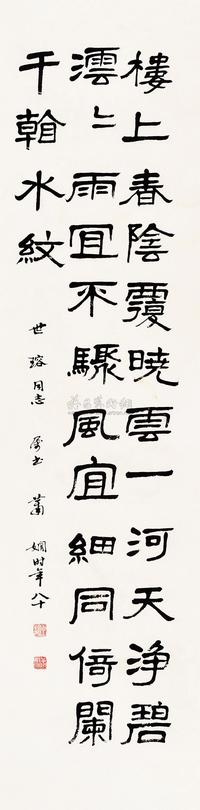 樓上春陰覆曉雲一河天淨碧
澐〻雨宜不驟風宜細同倚闌
干翰水紋
世瑢同志屬書蕭嫻时年八十